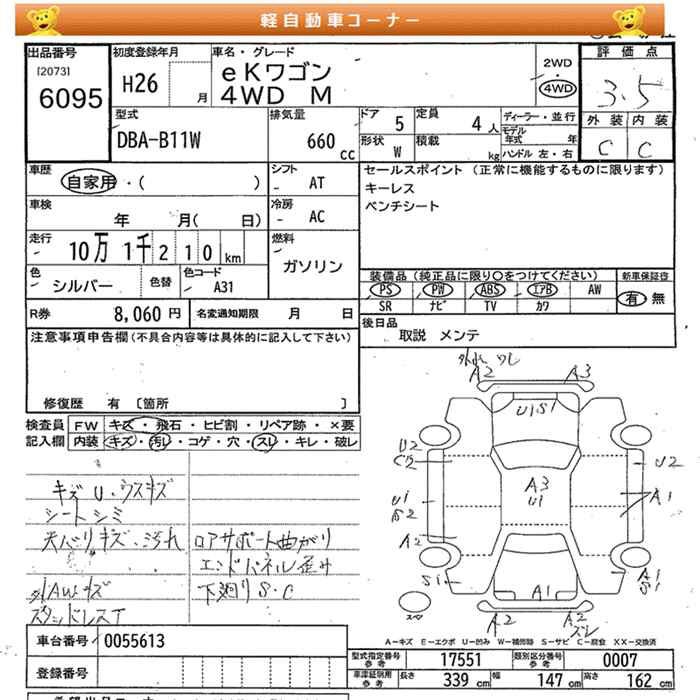 軽自動車コーナー
出品番号
[2073]
6095
初度登録年月
H26
月
車名・グレード
eKワゴン
4WD M
2WD
・
4WD
評価点
3.5
外装 内装
C C
型式
DBA-B11W
排気量
660 cc
ドア
5
定員
4人
形状
W
積載
kg
ディーラー・並行
モデル年式 年
ハンドル 左・右
車歴
自家用・( )
シフト
- AT
車検
年 月( 日)
冷房
- AC
走行
10万 1千 2 1 0 km
燃料
ガソリン
色
シルバー
色替
色コード
A31
R券
8,060 円
名変通知期限 月 日
セールスポイント (正常に機能するものに限ります)
キーレス
ベンチシート
装備品 (純正品に限り○をつけてください)
PS PW ABS エアB AW
SR ナビ TV カワ
新車保証書
有 無
後日品
取説 メンテ
注意事項申告欄 (不具合内容等は具体的に記入して下さい)
修復歴 有 [箇所 ]
検査員記入欄
FW キズ・飛石・ヒビ割・リペア跡・×要
内装 キズ・汚れ・コゲ・穴・スレ・キレ・破レ
キズ U・ウスキズ
シートシミ
天バリキズ・汚れ
ロアサポート曲がり
エンドパネル歪み
下廻りS・C
外AWキズ
スタッドレスT
A2 A3
U1S1
U2
U2
A3
U1
U1
S2
A1
A2
S1
A1
S1
A1
A2
A2
ズレ
スペア
A-キズ E-エクボ U-凹み W-補修跡 S-サビ C-腐食 XX-交換済
車台番号 0055613
登録番号
型式指定番号 参考 17551
類別区分番号 参考 0007
車庫証明用 参考 長さ 339 cm 幅 147 cm 高さ 162 cm